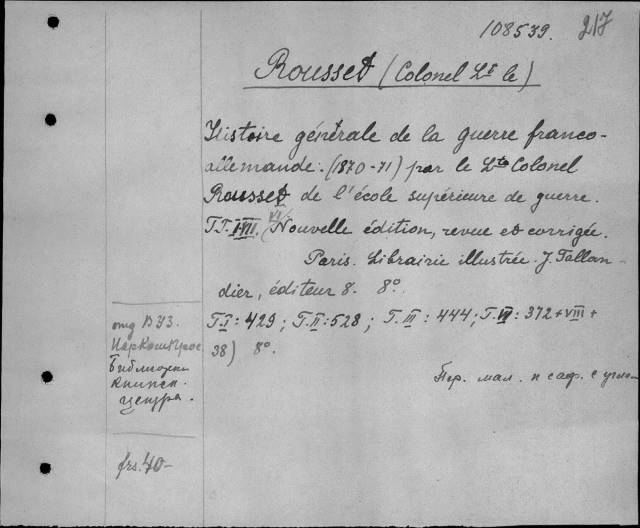 108539. 217
Rousset (Colonel Lt le)
Histoire générale de la guerre franco-
allemande. (1870-71) par le Lt Colonel
Rousset de l'école supérieure de guerre.
T.T. I-VII. Nouvelle édition, revue et corrigée.
Paris. Librairie illustrée. J. Tallan-
dier, éditeur 8. 8°.
T. I: 429; T. II: 528; T. III: 444; T. : 372 + VIII +
38) 8°.
Пер. мал. п саф. с углом
отд ВУЗ.
Наркомпрос
Библиотеки
книжн.
центра.
frs. 40-